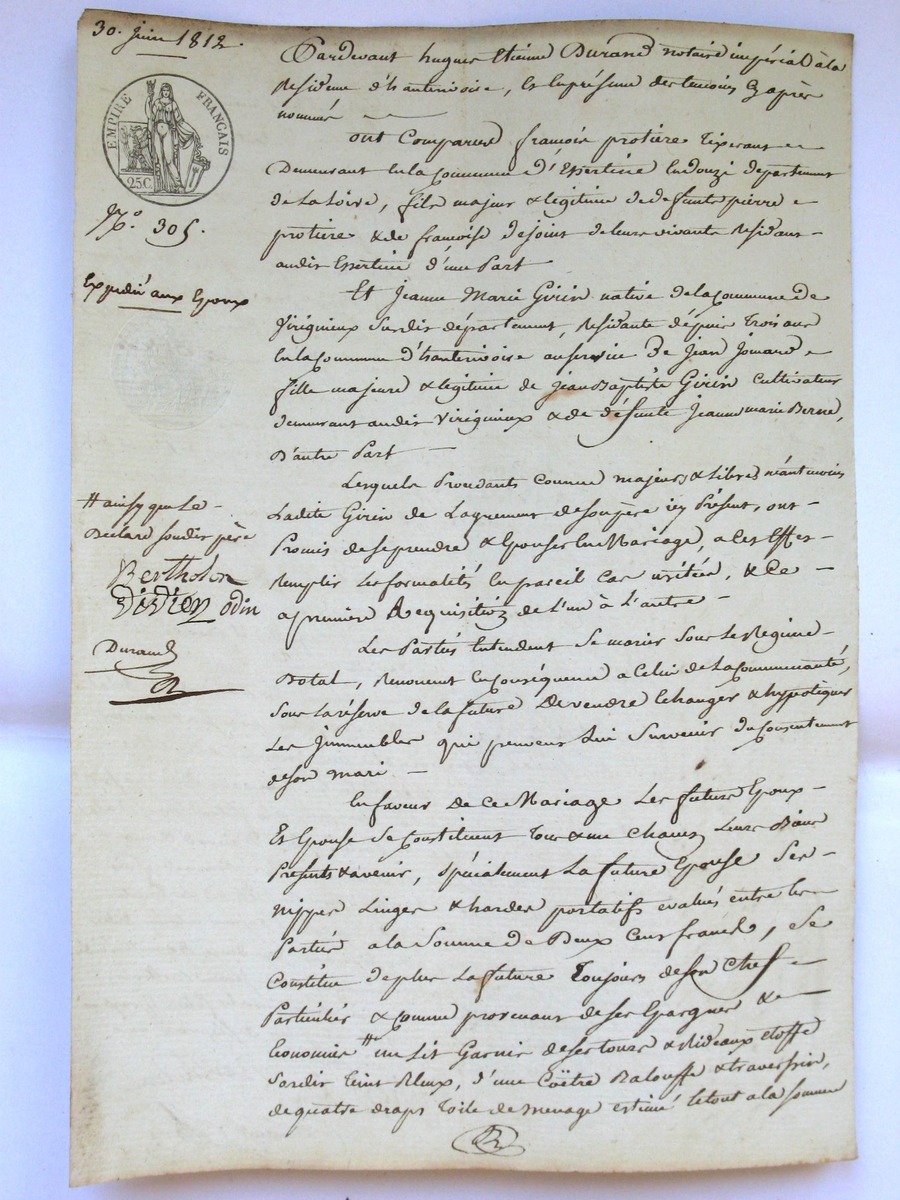 30. juin 1812.
EMPIRE FRANÇAIS
25 C.
N.° 305.
Expedié aux Epoux
# ainsy que le
Déclare soudit père
Bertholon
Didier odin
Durand
Pardevant hugues Etienne Durand notaire impérial à la
Residence d'hauterivoire, Et en présence des temoins cy après
nommés
ont Comparus françois protiere Tixerant
Demeurant en la Commune d'Essertine en donzi département
de La Loire, fils majeur & legitime de defunts pierre
protiere & de françoise dejoint de leurs vivants Residants
audit Essertine d'une Part
Et Jeanne Marie Girin native de la Commune de
Virignieux susdit département, Residante dépuis Trois ans
En la Commune d'hauterivoire au service de Jean Jomard
fille majeure & legitime de Jean Baptiste Girin Cultivateur
demeurant audit Virigniux & de défunte Jeanne marie Berne,
D'autre Part
Lesquels Procedants Comme majeurs & Libres néantmoins
Ladite Girin de L'agrement de son père icy Présent, ont
Promis de se prendre & Epouser En Mariage, a Ces Effets
remplir Les formalités En pareil Cas usitées, & Ce
a premiere Requisition de L'un à L'autre
Les Parties Entendent Se marier Sous Le Régime
Dotal, Renoncent En conséquence a Celui de La Communauté,
Sous La réserve de la future De vendre Echanger & hypotéquer
Les Immeubles qui peuvent Lui Survenir du Consentement
de son mari
En faveur De Ce Mariage Les futurs Epoux
Et Epouse Se Constituent Tous & un Chacun Leurs Biens
Presents & avenir, Spécialement La future Epouse Ses
nippes Linges & hardes portatifs evalués entre les
Parties a la Somme de Deux Cent francs, Se
Constitue de plus La future Toujours de son Chef
Particulier & Comme provenant de ses Epargnes &
Economies # un Lit Garni de ses tours & Rideaux étoffe
Sardis teint Bleux, d'une Coëtre Balouffe & traversin,
de quatre draps Toile de menage estimé le tout a la somme